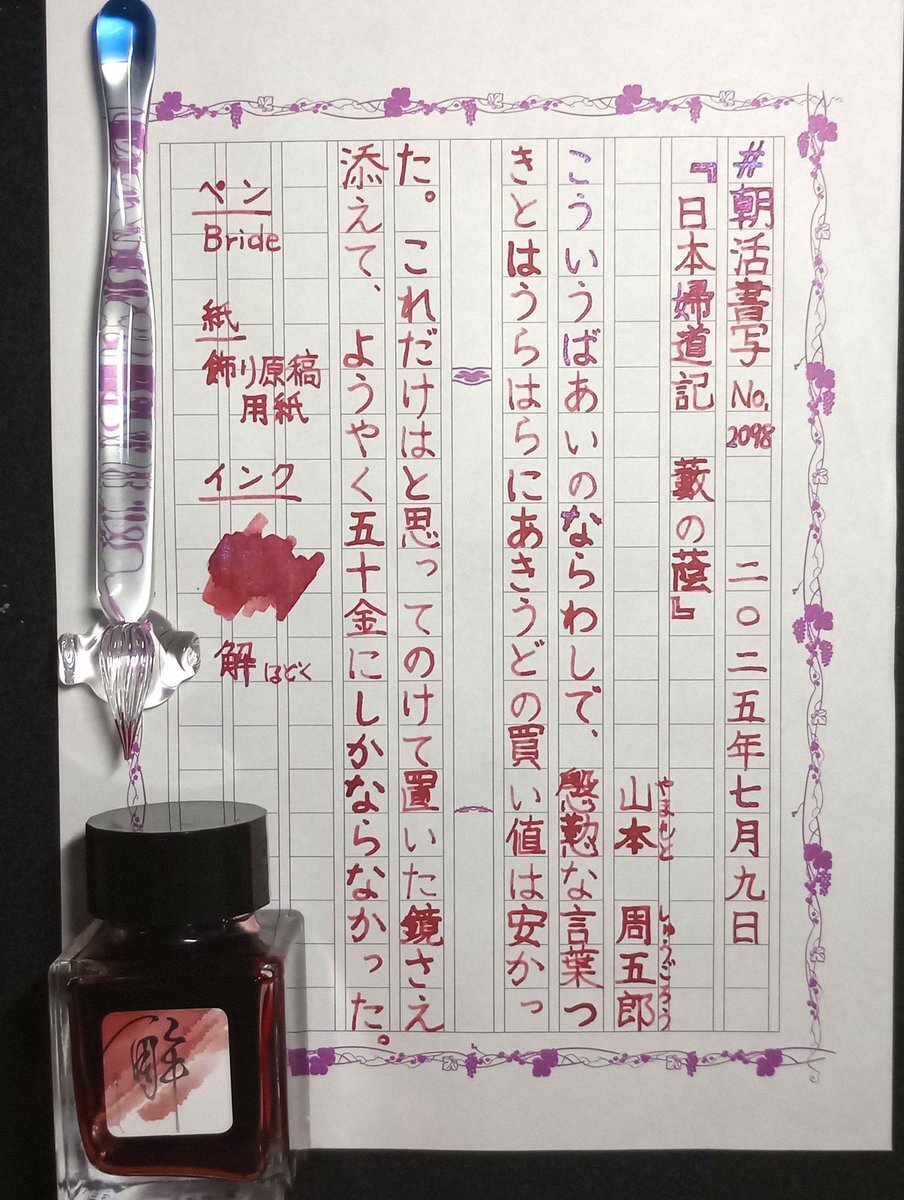 #朝活書写 No.2098 二〇二五年七月九日
『日本婦道記 藪の蔭』
山本 周五郎
やまもと しゅうごろう
こういうばあいのならわしで、慇懃な言葉つ
きとはうらはらにあきうどの買い値は安かっ
た。これだけはと思ってのけて置いた鏡さえ
添えて、ようやく五十金にしかならなかった。
ペン
Bride
紙
飾り原稿
用紙
インク
解 ほどく
解